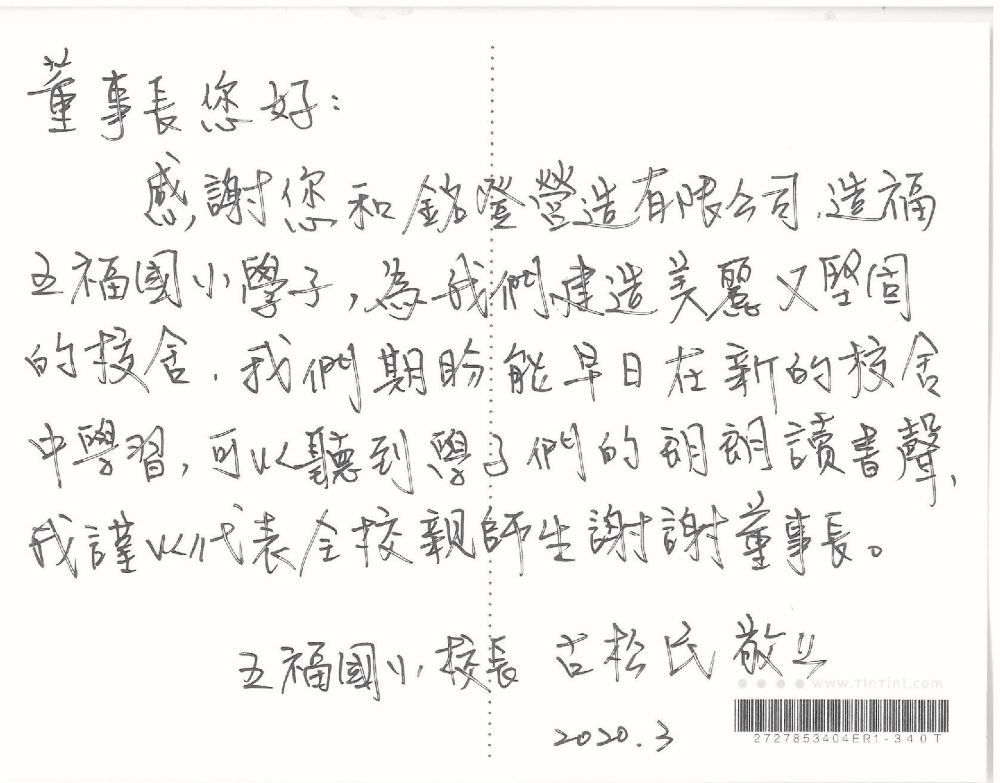 董事長您好：
感謝您和銘登營造有限公司，造福
五福國小學子，為我們建造美麗又堅固
的校舍．我們期盼能早日在新的校舍
中學習，可以聽到學子們的朗朗讀書聲，
我謹以代表全校親師生謝謝董事長。
五福國小 校長 古松民 敬上
www.TinTint.com
2020.3
2727853404ER1-340T